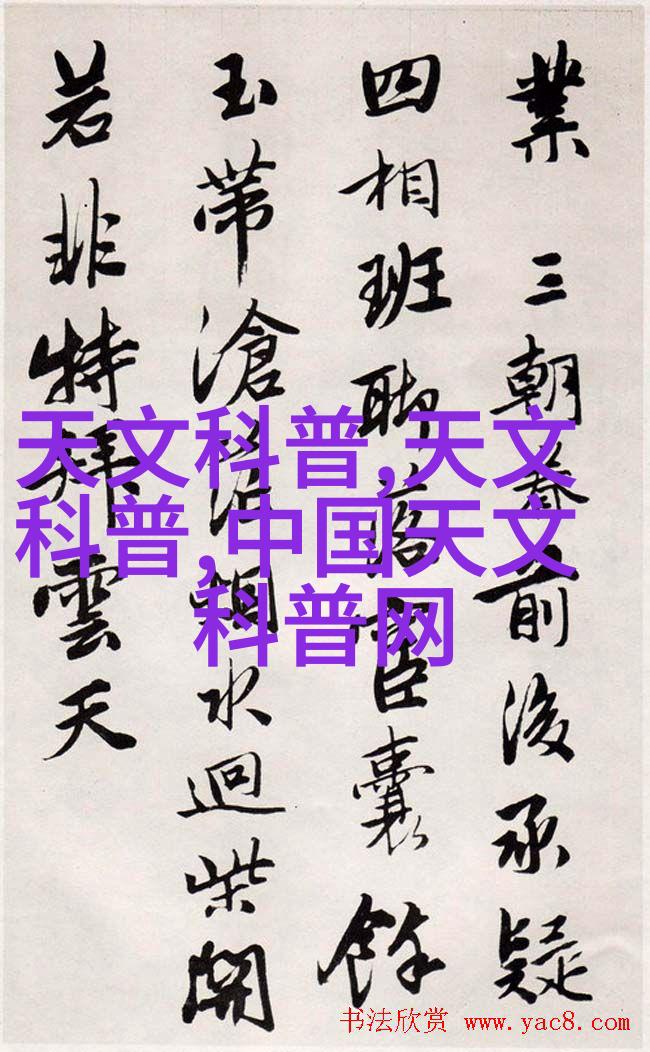 業 三朝前後承疑
四相班聯臣囊餘
玉帶滄烟水迴柴開
若非特拜雲天
天文科普,天文
科普,中国天文
科普网
书法欣赏 www.yac8.com